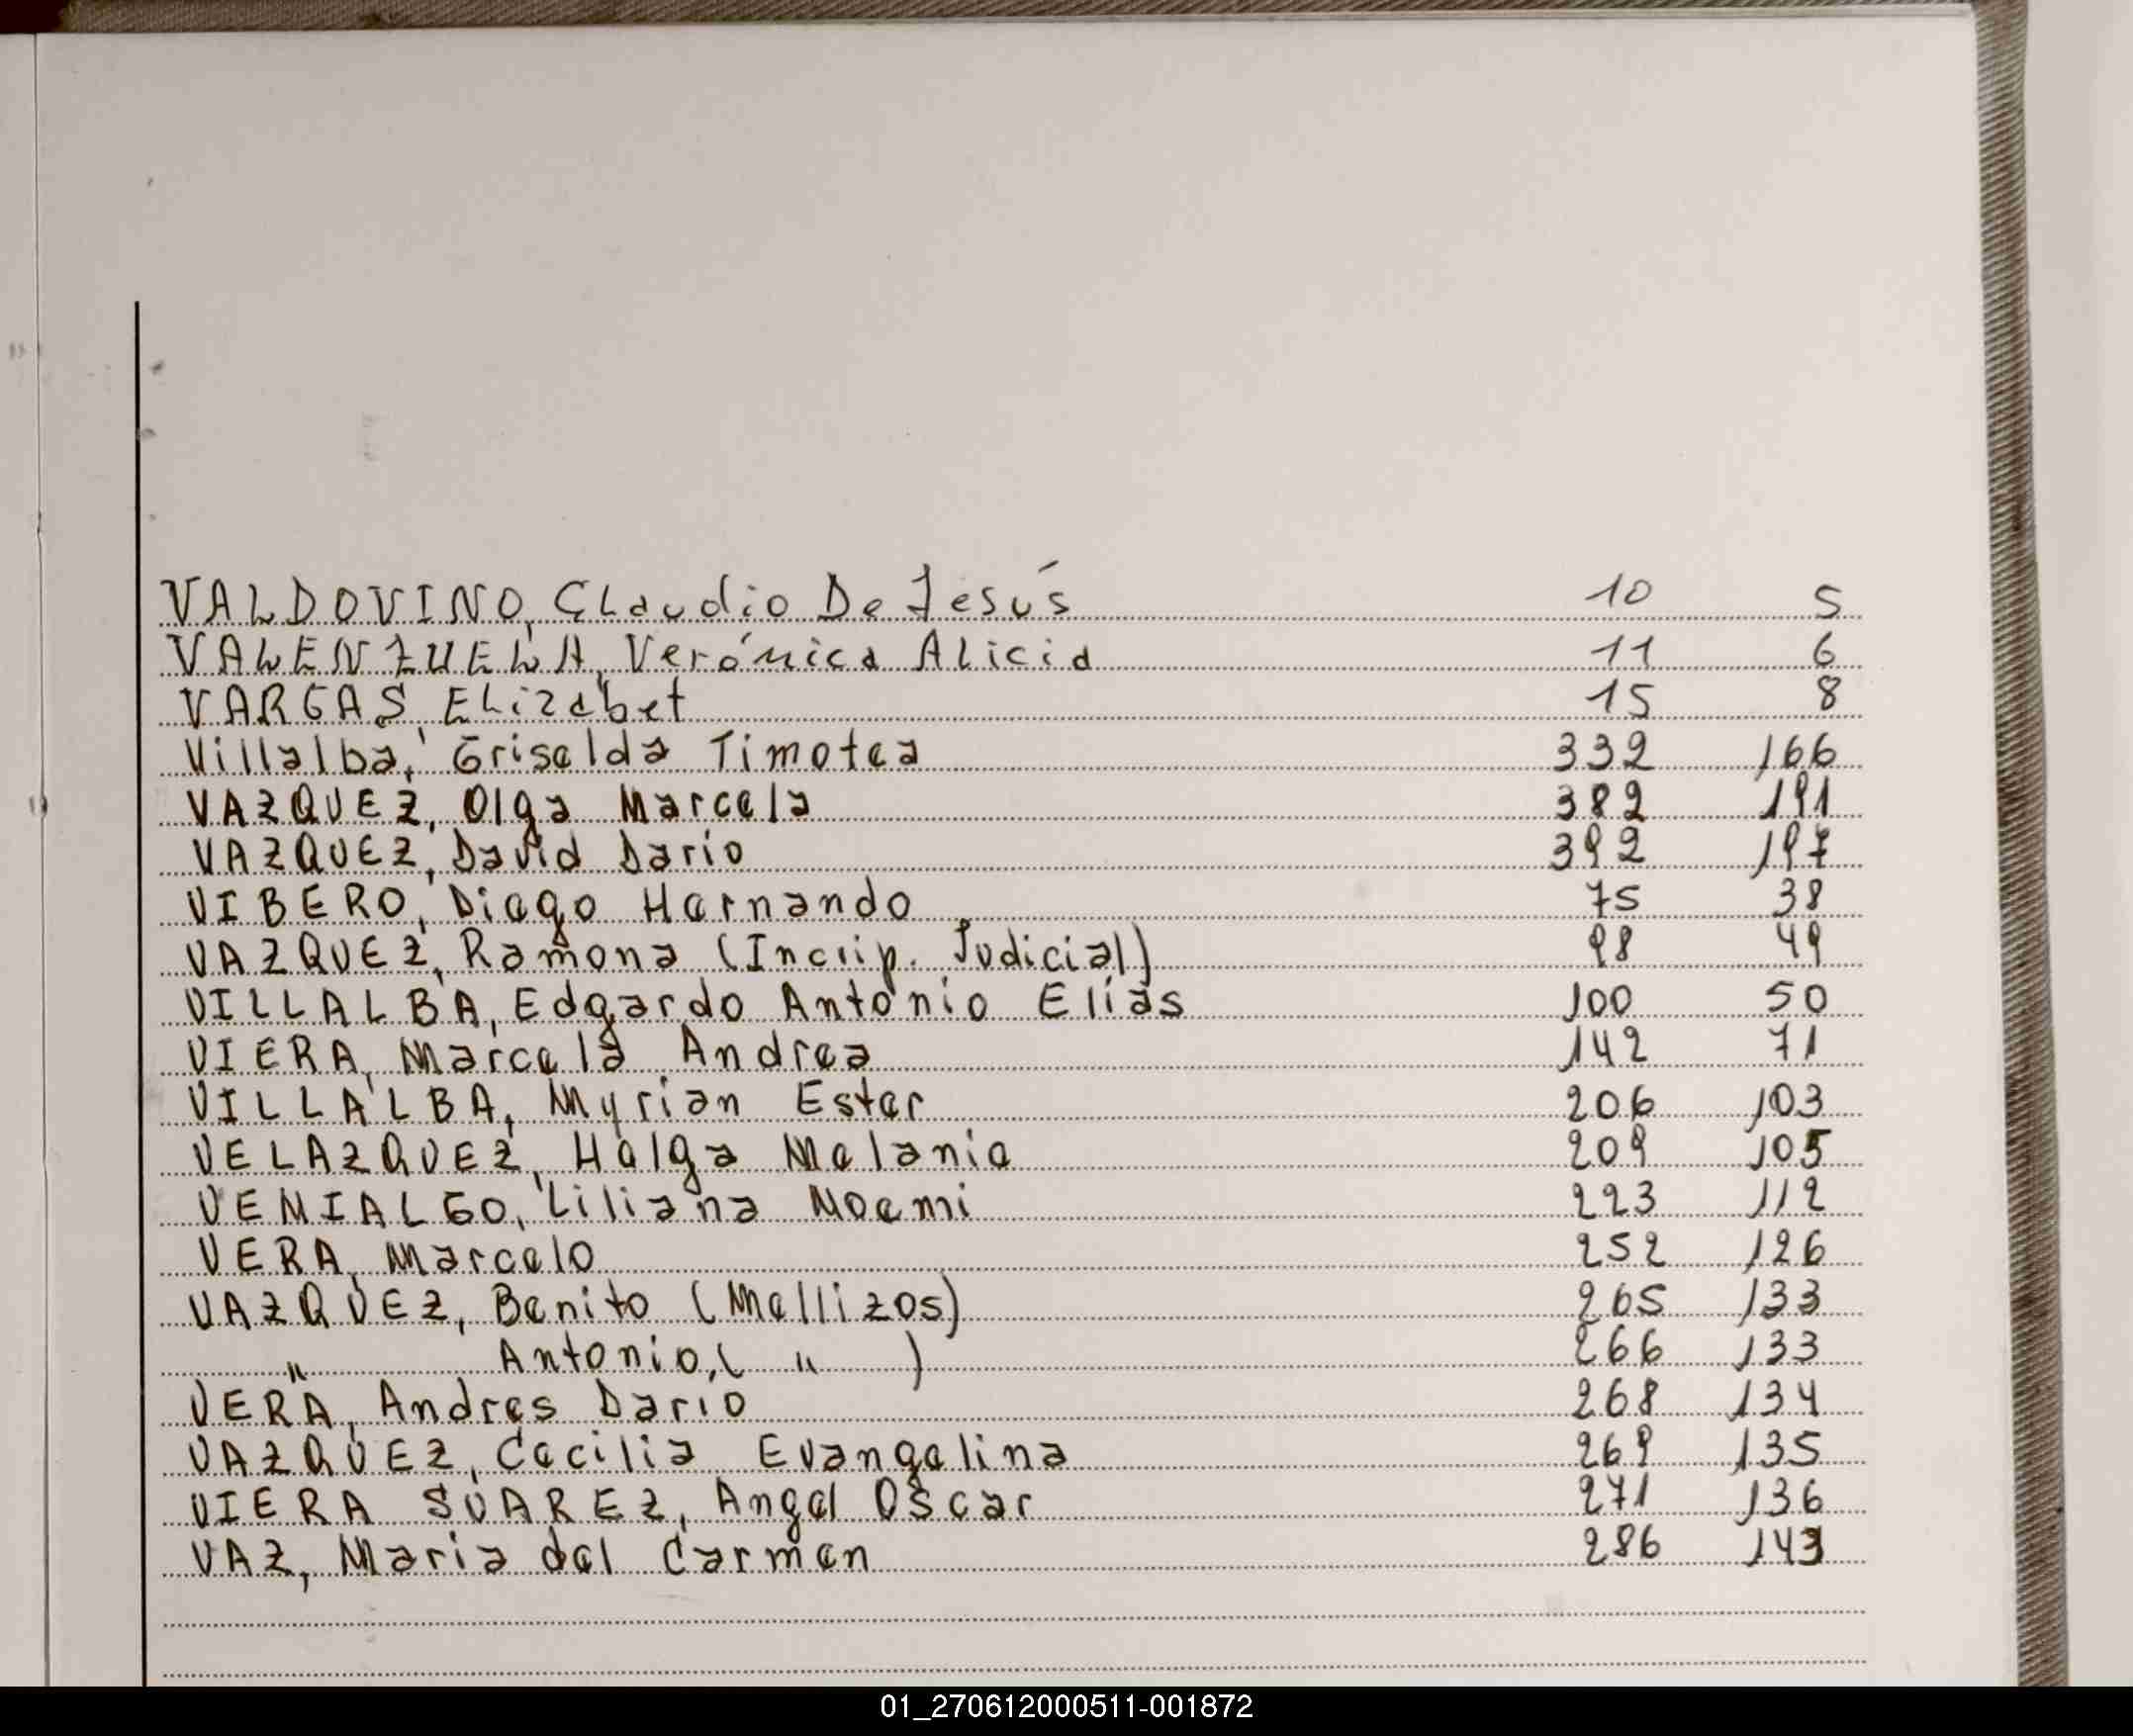 VALDOVINO, Claudio De Jesús 10 5
VALENZUELA, Verónica Alicia 11 6
VARGAS, Elizabet 15 8
Villalba, Griselda Timotea 332 166
VAZQUEZ, Olga Marcela 382 191
VAZQUEZ, David Dario 392 197
VIBERO, Diego Hernando 75 38
VAZQUEZ, Ramona (Incrip. Judicial) 98 49
VILLALBA, Edgardo Antonio Elias 100 50
VIERA, Marcela Andrea 142 71
VILLALBA, Myrian Ester 206 103
VELAZQUEZ, Halga Melanie 209 105
VENIALGO, Liliana Noemi 223 112
VERA, Marcelo 252 126
VAZQUEZ, Benito (Mellizos) 265 133
" Antonio, ( " ) 266 133
VERA, Andres Dario 268 134
VAZQUEZ, Cecilia Evangelina 269 135
VIERA SUAREZ, Angel Oscar 271 136
VAZ, Maria del Carmen 286 143
01_270612000511-001872